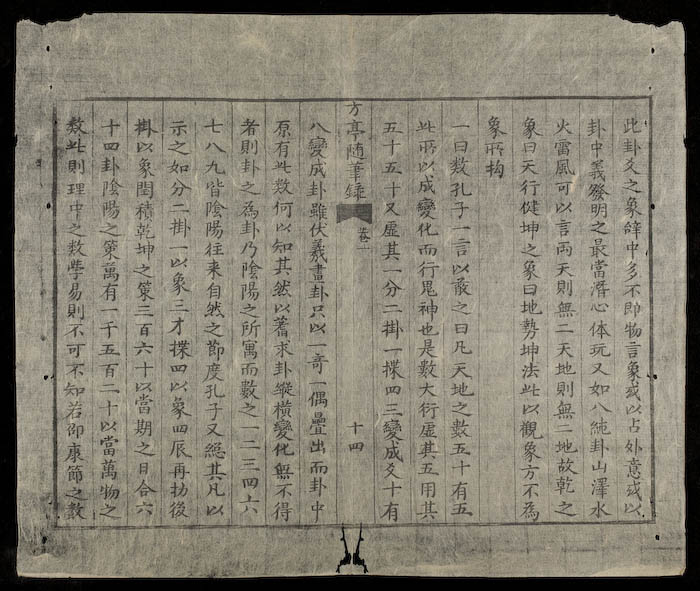 此卦爻之象辭中多不即物言象或以占外意或以
卦中義發明之最當潛心體玩又如八純卦山澤水
火雷風可以言両天則無二天地則無二地故乾之
象曰天行健坤之象曰地勢坤法此以觀象方不為
象所拘
一曰数孔子一言以蔽之曰凡天地之数五十有五
此所以成變化而行鬼神也是数大衍虛其五用其
五十五十又虛其一分二掛一揲四三變成爻十有
方亭随筆錄
卷二
十四
八變成卦雖伏羲畫卦只以一奇一偶疊出而卦中
原有此数何以知其然以蓍求卦縱橫變化無不得
者則卦之為卦乃陰陽之所寓而数之一二三四六
七八九皆陰陽往来自然之節度孔子又總其凡以
示之如分二掛一以象三才揲四以象四辰再扐後
掛以象閏積乾坤之策三百六十以當期之日合六
十四卦陰陽之策萬有一千五百二十以當萬物之
数此則理中之数學易則不可不知若邵康節之数